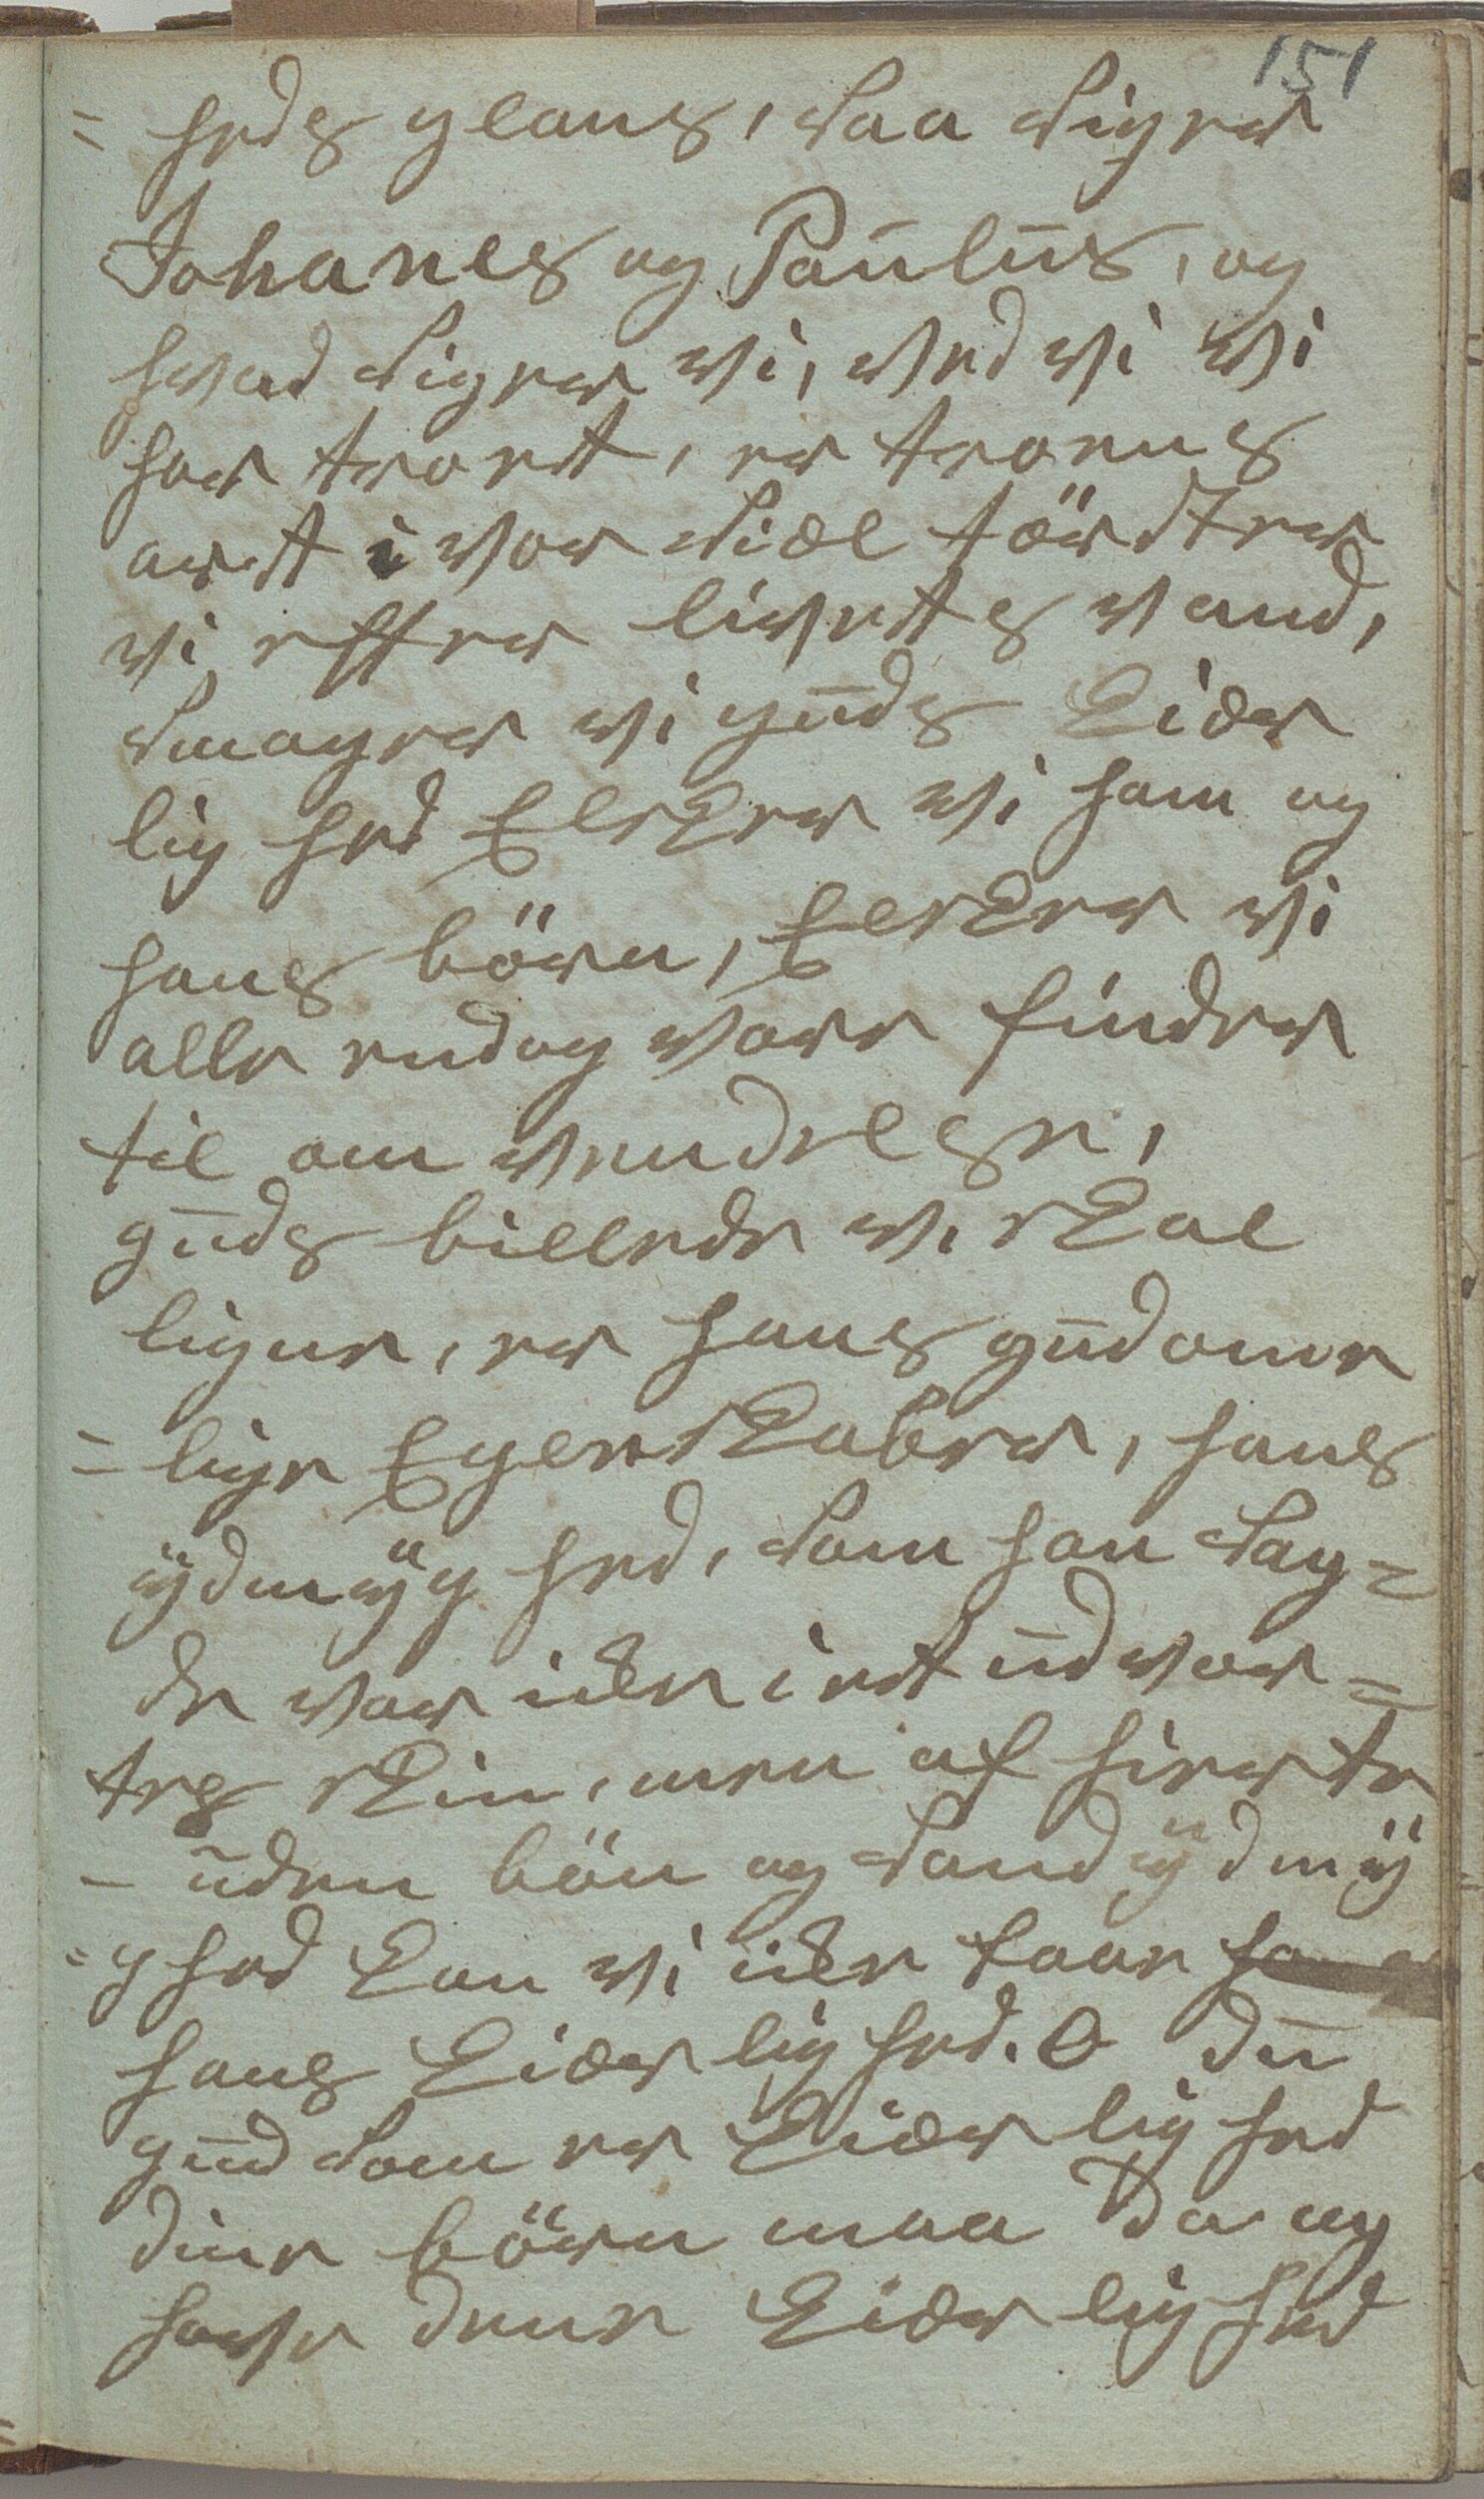 151
= heds glans, saa siger
Johanes og Paulus, og
hvad siger vi, ved vi vi
har troet, er troens
art i vor siæl törster
vi efter livets vand,
smager vi guds kiær
lig hed Elsker vi ham og
hans börn, Elsker vi
alle endog vore finder
til om vendelse,
guds billede vi skal
ligne, er hans gudome
= lige Egenskaber, hans
ydmyg hed, som han sag=
de var ikke i et udvor=
tes skin, men af hierte
- uden bön og sand ydmy
= g hed kan vi ikke faae
hans kiær lig hed. O du
gud som er kiær lig hed
dine börn maa da og
have dene kiær lig hed